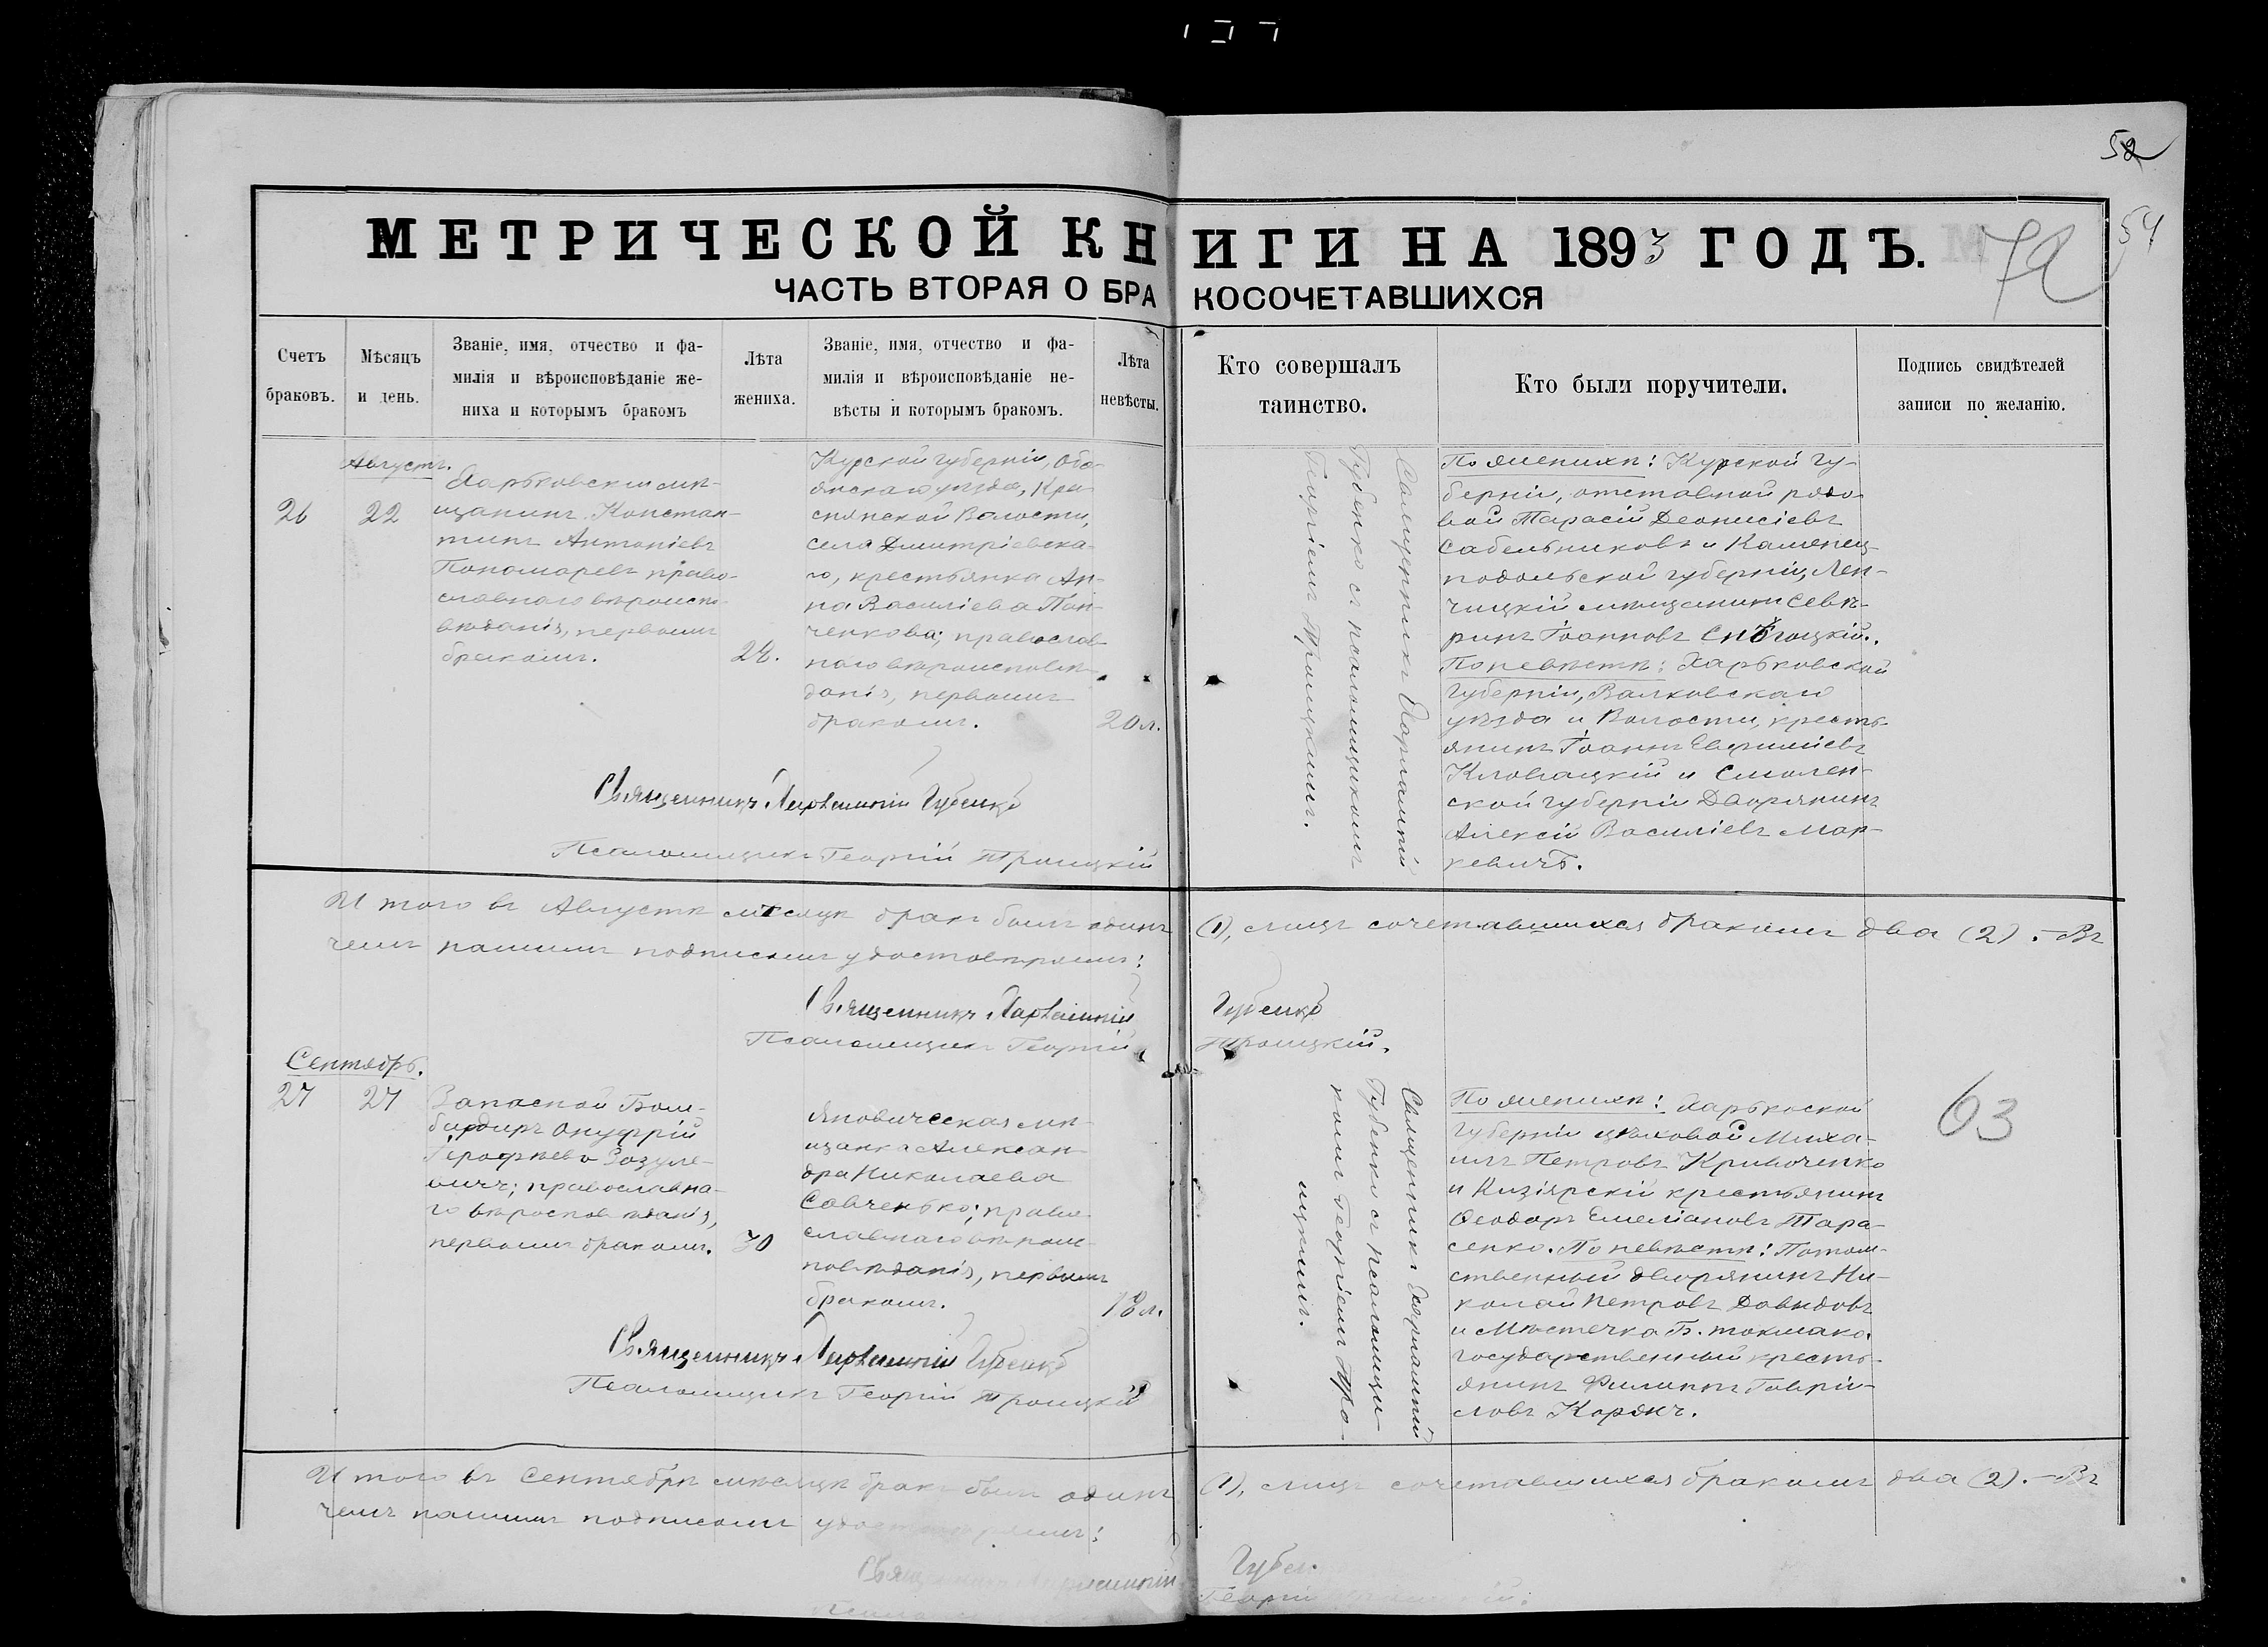 52
54
72
МЕТРИЧЕСКОЙ КНИГИ НА 1893 ГОДЪ.
ЧАСТЬ ВТОРАЯ О БРАКОСОЧЕТАВШИХСЯ
Счетъ
браковъ.
Мѣсяцъ
и день.
Званіе, имя, отчество и фа-
милія и вѣроисповѣданіе же-
ниха и которымъ бракомъ
Лѣта
жениха.
Званіе, имя, отчество и фа-
милія и вѣроисповѣданіе не-
вѣсты и которымъ бракомъ.
Лѣта
невѣсты.
Кто совершалъ
таинство.
Кто были поручители.
Подпись свидѣтелей
записи по желанію.
Августъ.
26
22
Харьковскій мѣ-
щанинъ Констан-
тинъ Антоніевъ
Пономаревъ право-
славнаго вѣроиспо-
вѣданія, первымъ
бракомъ.
24.
Курской губерніи, Обо-
янскаго уѣзда, Кра-
снянской Волости,
села Дмитріевска-
го, крестьянка Ан-
на Василіева Пан-
ченкова; православ-
наго вѣроисповѣ-
данія, первымъ
бракомъ.
20 л.
Священникъ Парѳеній
Губенко съ псаломщикомъ
Георгіемъ Троицкимъ.
По женихѣ: Курской гу-
берніи, отставной рядо-
вой Тарасій Деонисіевъ
Сабельниковъ и Каменец-
подольской губерніи,
чицкій мѣщанинъ Севѣ-
ринъ Іоанновъ
По невѣстѣ: Харьковской
губерніи, Валковскаго
уѣзда и Волости, кресть-
янинъ Іоаннъ Евфиміевъ
Кловацкій и Смолен-
ской губерніи Дворянинъ
Алексій Василіевъ Мар-
кевичъ.
Священникъ Парѳеній Губенко
Псаломщикъ Георгій Троицкій
И того въ Августѣ мѣсяцѣ бракъ былъ одинъ (1), лицъ сочетавшихся бракомъ два (2). – Въ
чемъ нашимъ подписомъ удостовѣряемъ:
Священникъ Парѳеній Губенко
Псаломщикъ Георгій Троицкій.
Сентябрь.
27
27
Запасной Бом-
бардиръ Онуфрій
Іерофѣевъ Зозуле-
вичъ; православна-
го вѣроисповѣданія,
первымъ бракомъ.
30
Яновическая мѣ-
щанка Алексан-
дра Николаева
Савченько; право-
славнаго вѣроис-
повѣданія, первымъ
бракомъ.
18 л.
Священникъ Парѳеній
Губенко съ псаломщи-
комъ Георгіемъ Тро-
ицкимъ.
По женихѣ: Харькоской
губерніи цѣховой Миха-
илъ Петровъ Кривоченко
и Кизіярскій крестьянинъ
Ѳеодоръ Емеліановъ Тара-
сенко. По невѣстѣ: Потом-
ственный дворянинъ Ни-
колай Петровъ Давидовъ
и Мѣстечка Б. токмака.
государственный кресть-
янинъ Филиппъ Гаврі-
ловъ Коржъ.
63
Священникъ Парѳеній Губенко
Псаломщикъ Георгій Троицкій
И того въ Сентябрѣ мѣсяцѣ бракъ былъ одинъ (1), лицъ сочетавшихся бракомъ два (2). – Въ
чемъ нашимъ подписомъ удостовѣряемъ:
Губен.
Георгій